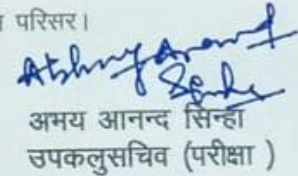 परिसर।
Abhay Anand
Sinha
अभय आनन्द सिन्हा
उपकलुसचिव (परीक्षा )